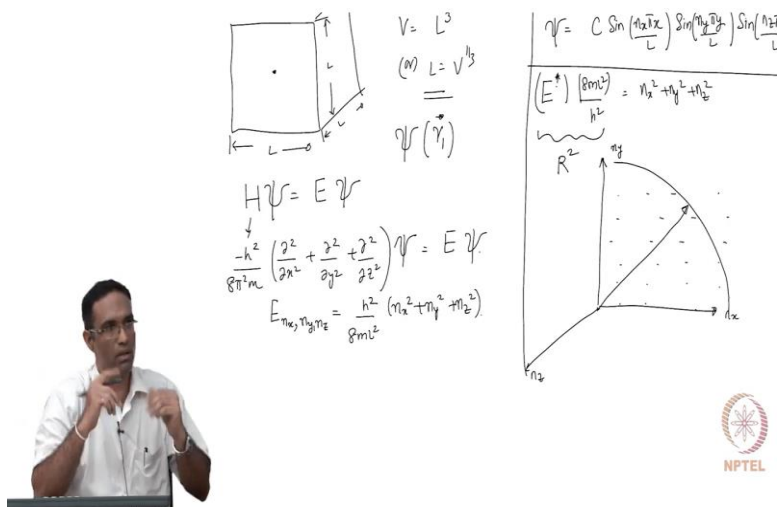 V = L³
(or) L = V^{1/3}
L
L
L
ψ(r₁)
Hψ = Eψ
-h²/8π²m (∂²/∂x² + ∂²/∂y² + ∂²/∂z²) ψ = Eψ.
E_{nx,ny,nz} = h²/8mL² (nx² + ny² + nz²).
ψ = C Sin(nxπx/L) Sin(nyπy/L) Sin(nzπ
(E*) (8mL²/h²) = nx² + ny² + nz²
R²
ny
nx
nz
NPTEL